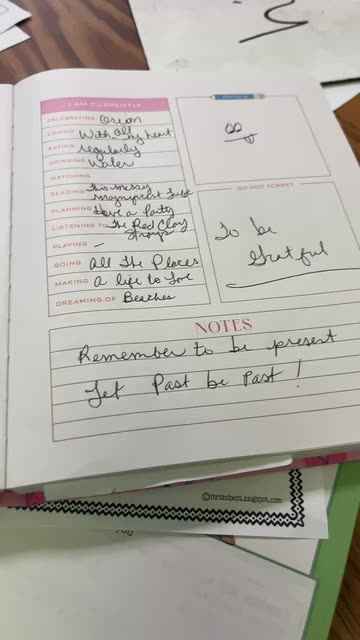 I AM CURRENTLY
CELEBRATING Orion
LOVING With all my heart
EATING regularly
DRINKING Water
WATCHING
READING This messy
PLANNING Have a Party
LISTENING TO The Red Clay
Strays
PLAYING –
GOING All The Places
MAKING A life to love
DREAMING OF Beaches
DO NOT FORGET
To be
Grateful
NOTES
Remember to be present
Let Past be Past!
©mrstrabest.blogspot.com